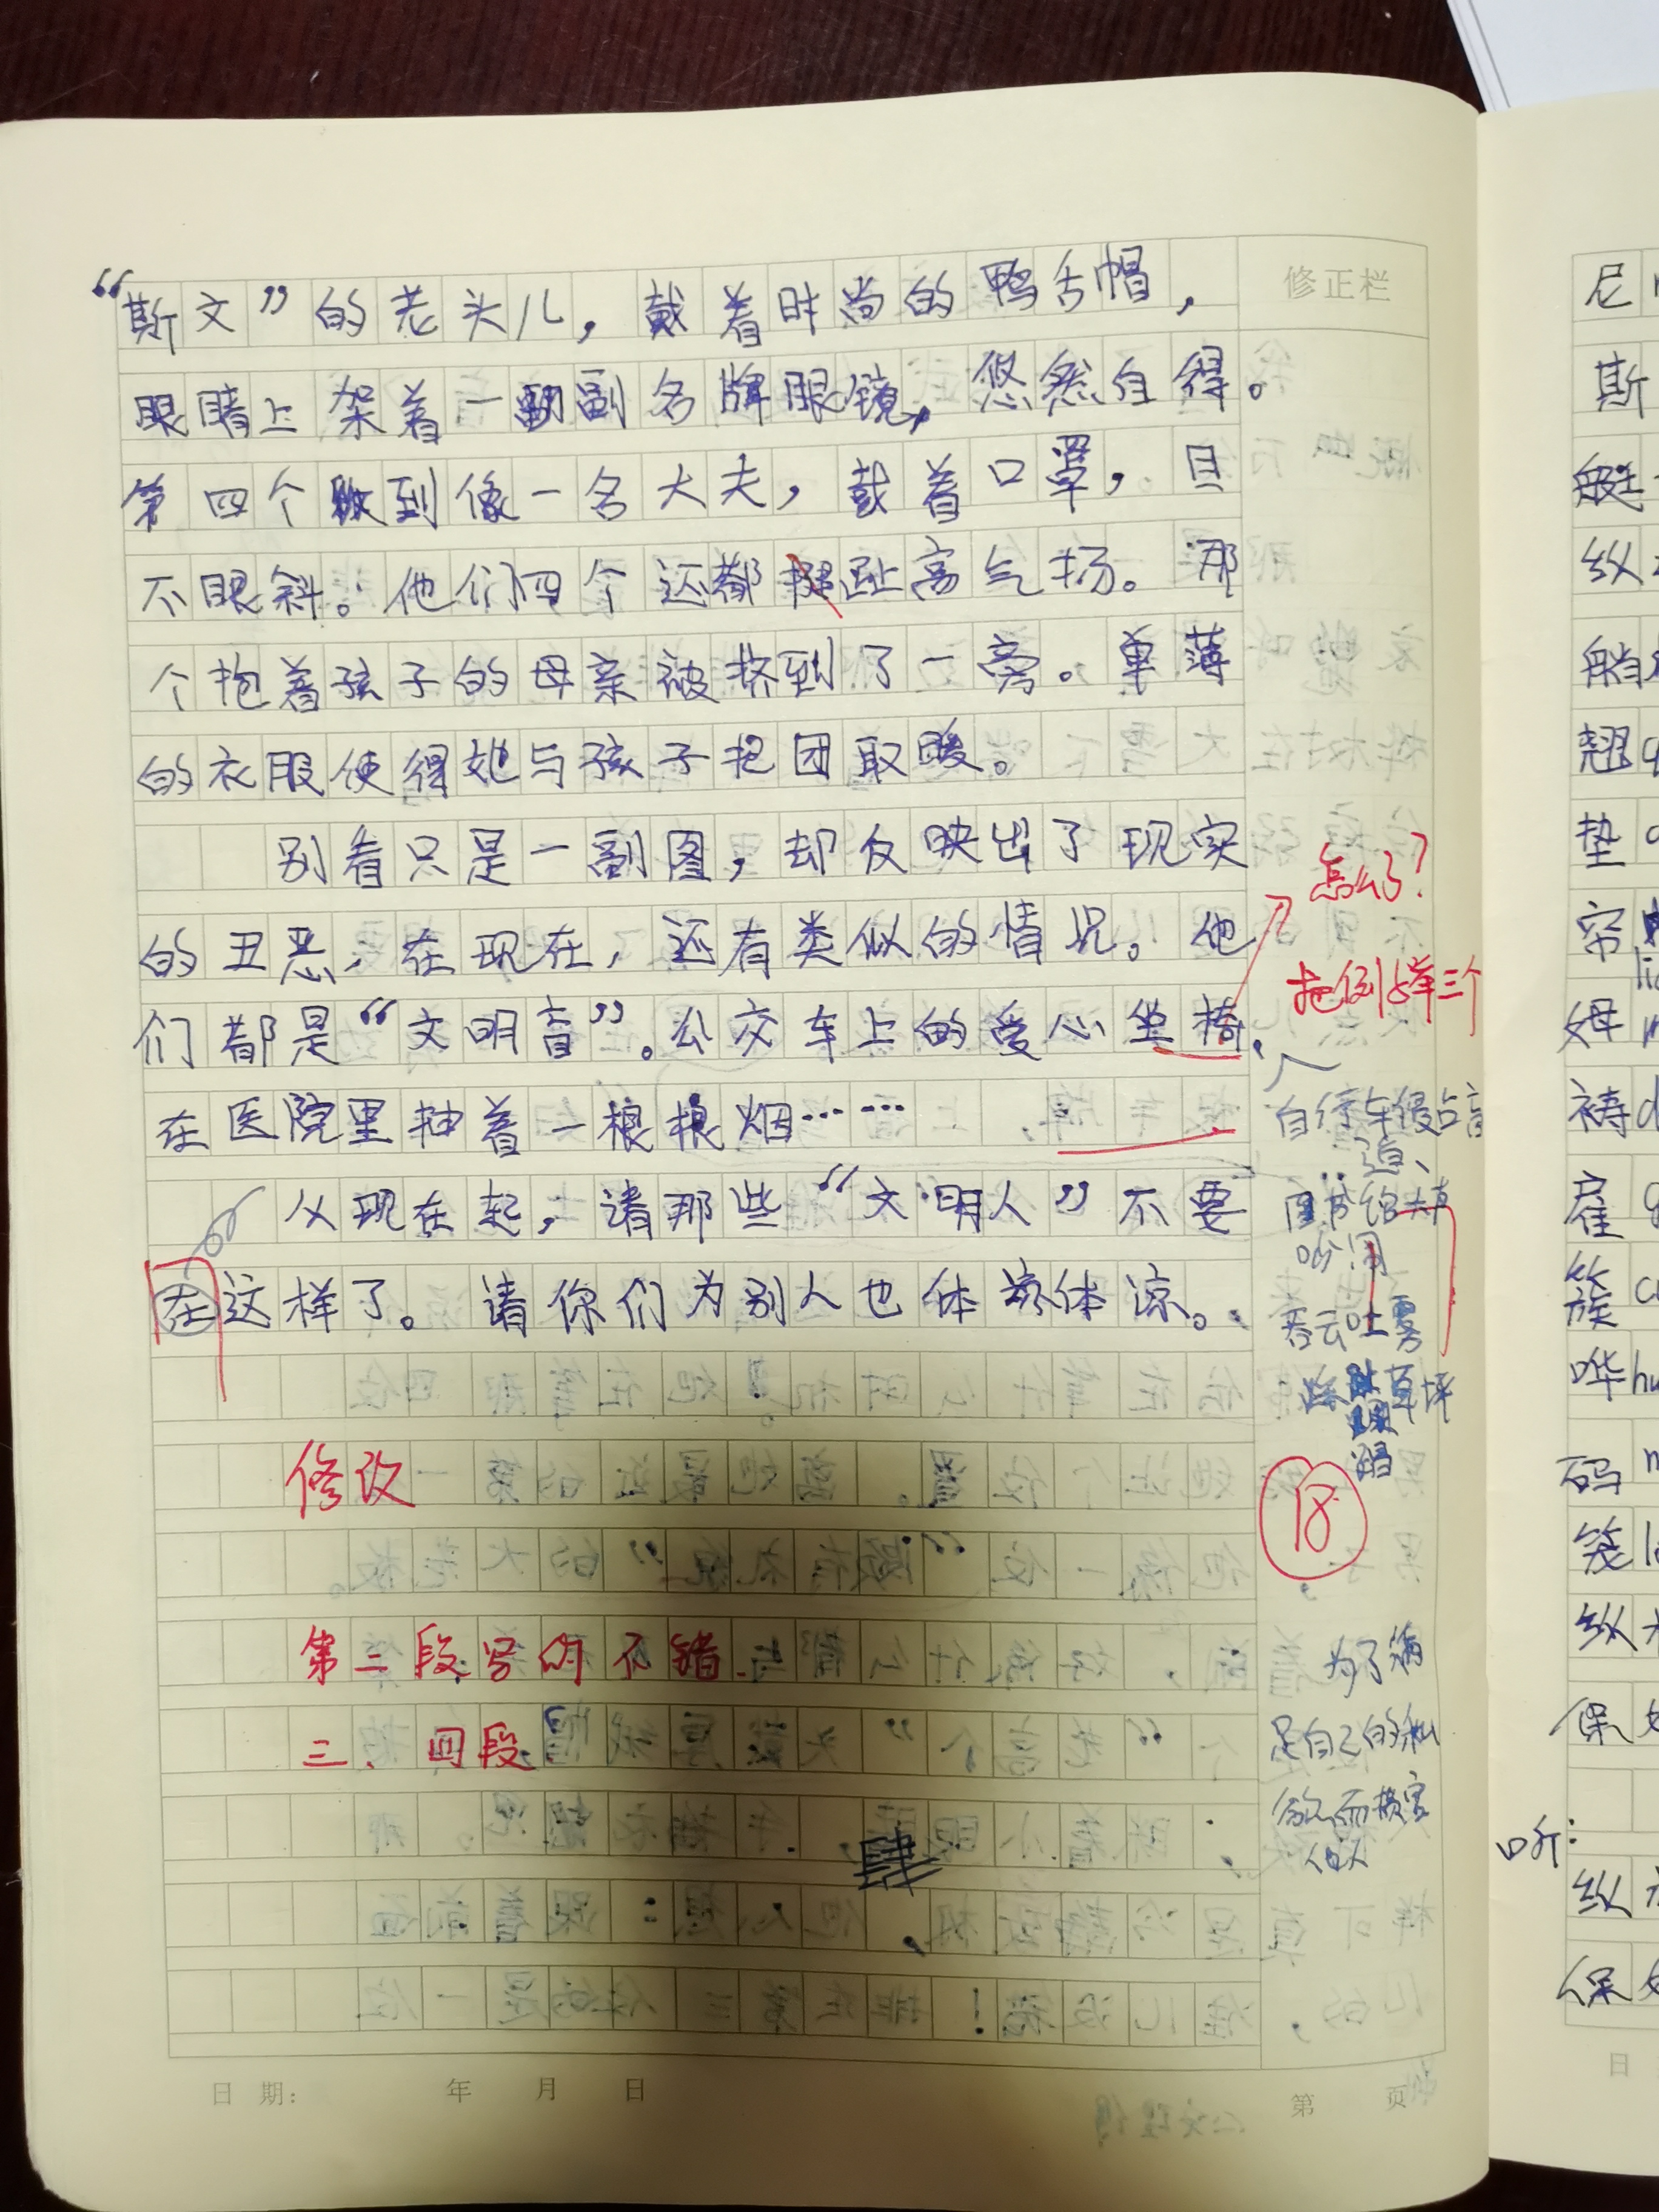 修正栏
“斯文”的老头儿，戴着时尚的鸭舌帽，
眼睛上架着一副名牌眼镜，悠然自得。
第四个到像一名大夫，戴着口罩，目
不眼斜。他们四个还都趾高气扬。那
个抱着孩子的母亲被挤到了一旁。单薄
的衣服使得她与孩子抱团取暖。
别看只是一副图，却反映出了现实
的丑恶，在现在，还有类似的情况。他
们都是“文明盲”。公交车上的爱心坐椅、
在医院里抽着一根根烟……
从现在起，请那些“文明人”不要
在这样了。请你们为别人也体谅体谅。
怎么了？
把例举三个
自行车侵占盲
道、
图书馆大声
吵闹
吞云吐雾
草坪
修改
18
第二段写的不错
三、四段
为了满
足自己的私
欲而损害
他人
日期：　年　月　日
第　页
尼
斯
艇
纵
艄
翘
垫
帘
姆
祷
雇
簇
哗
码
笼
纵
保
听：
纵
保
日